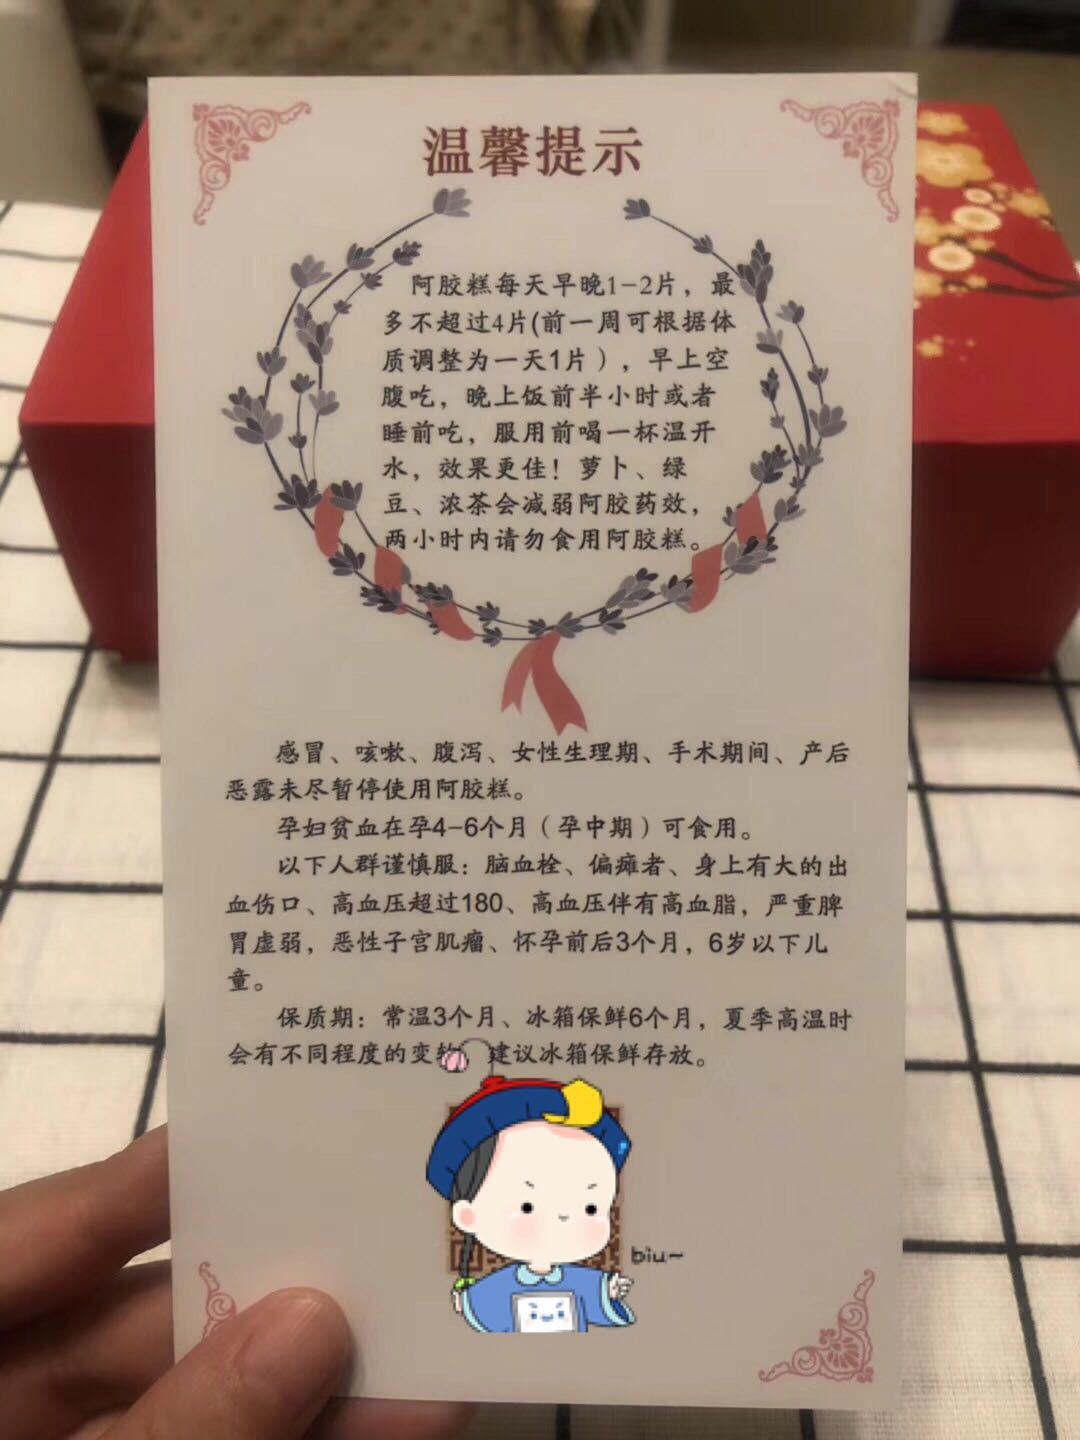 温馨提示
阿胶糕每天早晚1-2片，最
多不超过4片(前一周可根据体
质调整为一天1片），早上空
腹吃，晚上饭前半小时或者
睡前吃，服用前喝一杯温开
水，效果更佳！萝卜、绿
豆、浓茶会减弱阿胶药效，
两小时内请勿食用阿胶糕。
感冒、咳嗽、腹泻、女性生理期、手术期间、产后
恶露未尽暂停使用阿胶糕。
孕妇贫血在孕4-6个月（孕中期）可食用。
以下人群谨慎服：脑血栓、偏瘫者、身上有大的出
血伤口、高血压超过180、高血压伴有高血脂，严重脾
胃虚弱，恶性子宫肌瘤、怀孕前后3个月，6岁以下儿
童。
保质期：常温3个月、冰箱保鲜6个月，夏季高温时
会有不同程度的变 建议冰箱保鲜存放。
biu~